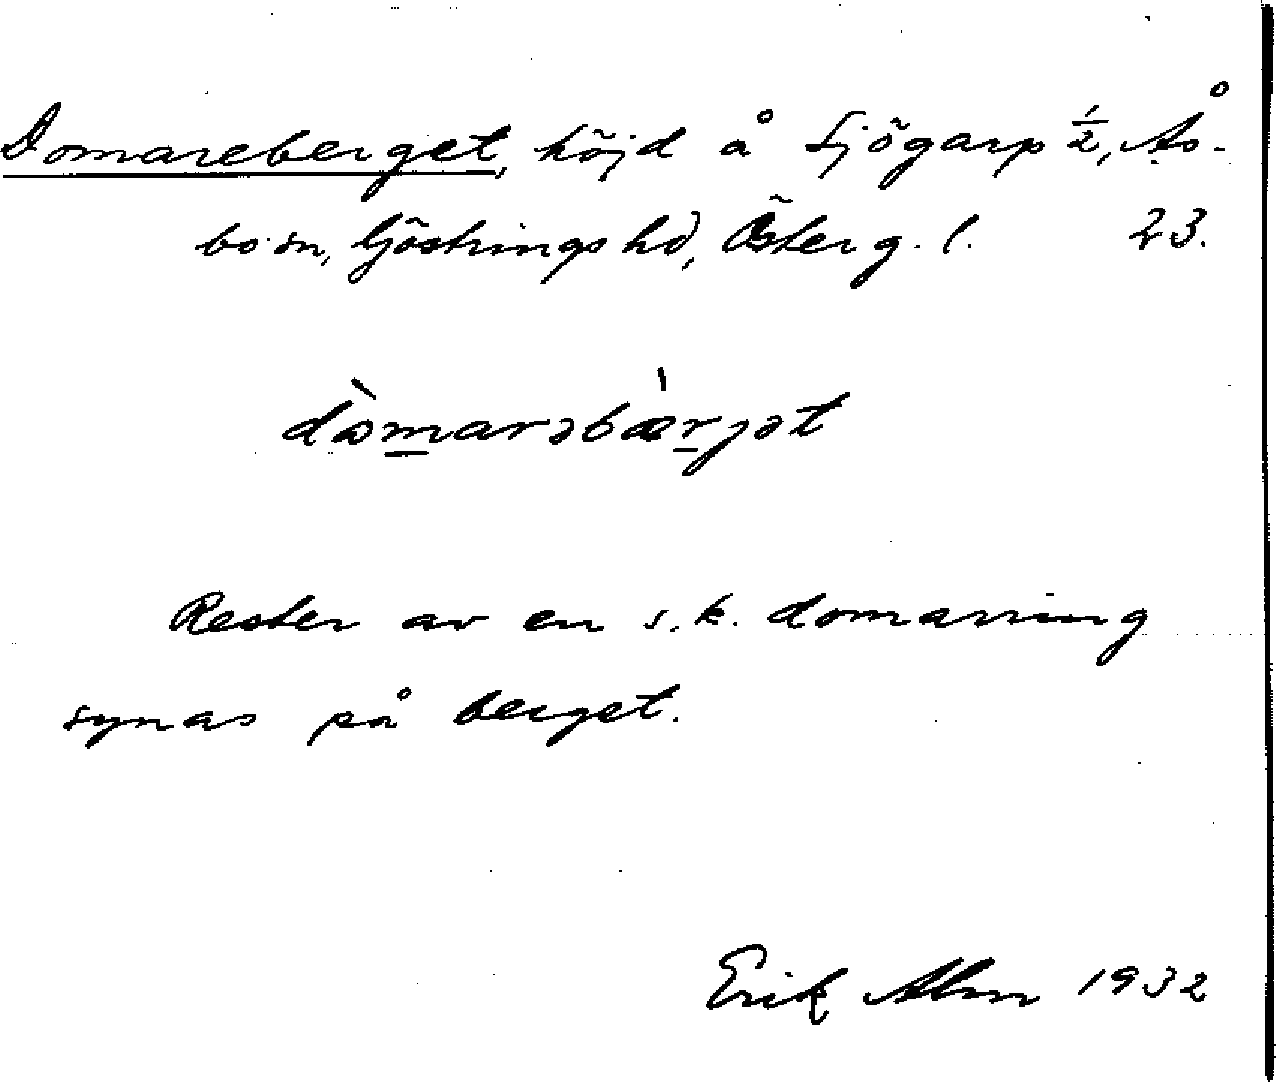 Domareberget, höjd å Sjögarp ½, Ås-
bo sn, Göstrings hd, Österg. l. 23.
dòmarəbæ̀rjət
Rester av en s.k. domarring
synas på berget.
Erik Alm 1932